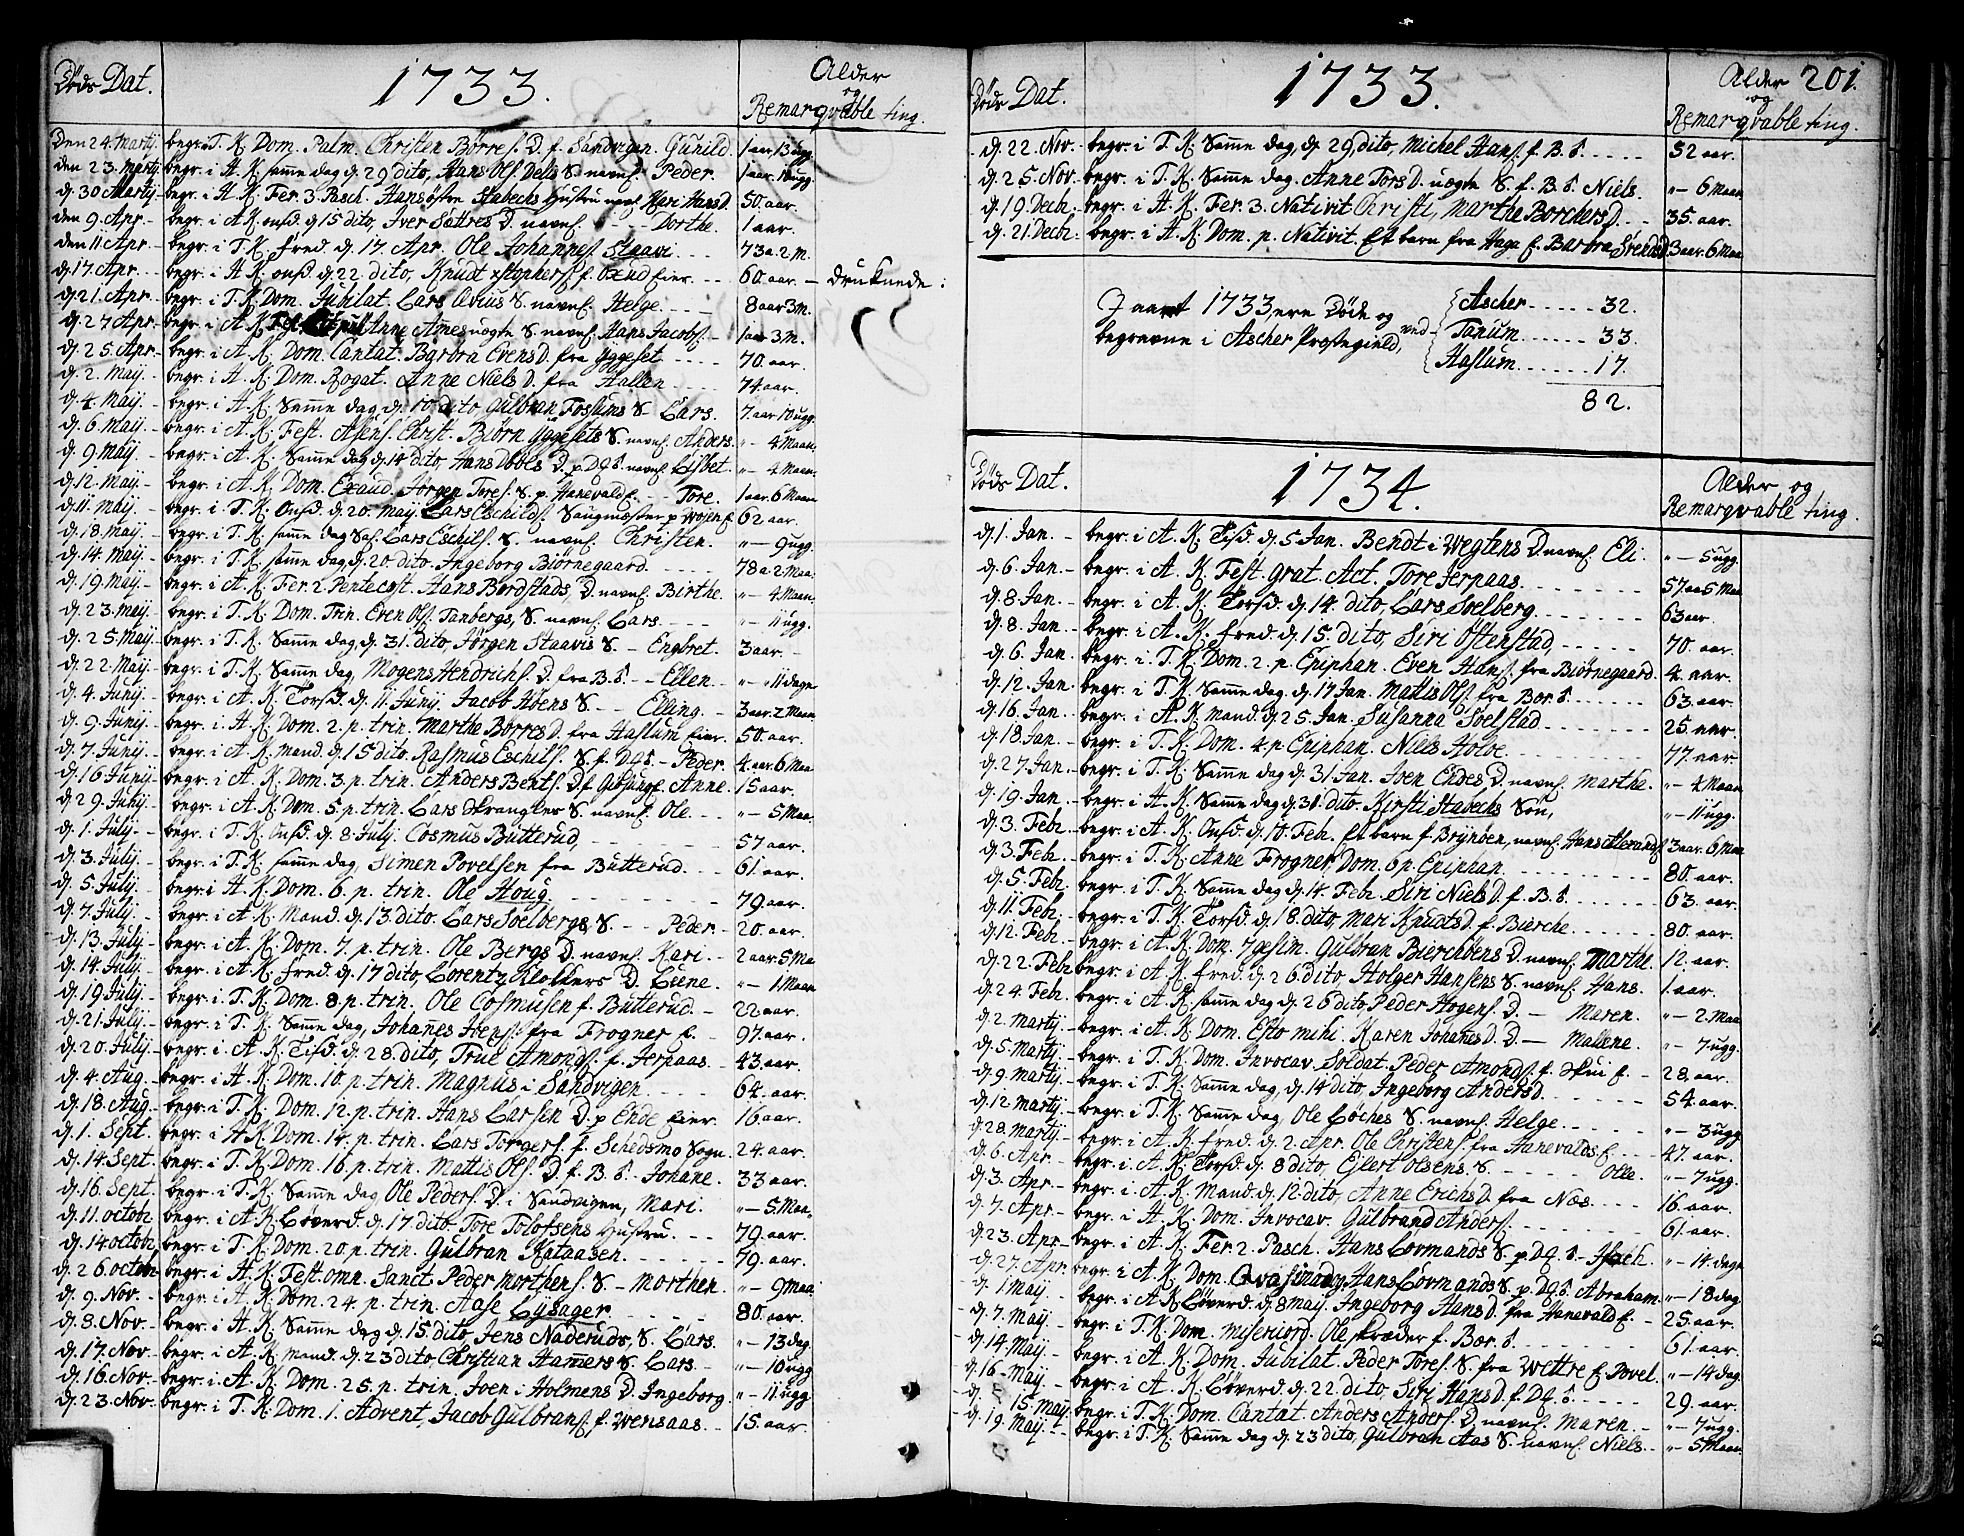 Døds Dat.
1733.
Alder
og
Remarqvable ting.
Den 24. Martij begr. i T. K. Dom. Palm. Christen Børres. D. f. Sandvigen. Gunild. 1 aar, 13 ugg.
den 23. Martij begr. i A. K. samme dag d. 29 dito, Hans Ols. Delis S. navnl. Peder. 1 aar.
d. 30 Martij begr. i A. K. Fer. 3. Pasch. Hans østre Stabechs Hustru navnl. Mari Hansd. 50. aar.
den 9. Apr. begr. i A. K. onsd. d. 15 dito, Iver Sættres D. navnl. Dorthe. 1 aar.
den 11 Apr. begr. i T. K. fred. d. 17. Apr. Ole Johannes. Staavi 73 a. 2 M.
d. 17. Apr. begr. i A. K. onsd. d. 22 dito, Knudt f. eier. 60. aar. – druknede.
d. 21. Apr. begr. i T. K. Dom. Jubilat. Lars S. navnl. Helge. 8 aar 3 m.
d. 27 Apr. begr. i A. K. Anne uægte S. navnl. Hans Jacobs. 1 aar 3 M.
d. 25. Apr. begr. i A. K. Dom. Cantat. Barbra Evens D. fra Yggeset 70. aar.
d. 2. May. begr. i A. K. Dom. Rogat. Anne Niels D. fra Hallen 74. aar.
d. 4. May. begr. i A. K. Samme dag, d. 10. dito, Gulbran Fossums S. Lars. 7. aar 10 ugg.
d. 6. May. begr. i A. K. Fest. Asens. Christ. Biørn Yggesets S. navnl. Anders. " – 4 Maan.
d. 9. May. begr. i A. K. Samme dag d. 14 dito, Hans D. p. navnl. Lisbet. " – 4 Maan.
d. 12. May. begr. i A. K. Dom. Exaud. Jørgen Tores. S. p. Hanevald e. Tore. 1 aar. 6 Maan
d. 11. May. begr. i T. K. Onsd. d. 20. May. Lars Eschilds. Saugmæster p. 62 aar.
d. 18. May. begr. i T. K. samme dag Sal. Lars Eschils. S. navnl. Christen. " – 9 ugg.
d. 14. May. begr. i T. K. samme dag, d. 20. dito Ingeborg Biørnegaard. 78 a. 2 Maa.
d. 19. May. begr. i A. K. Fer. 2. Pentecost. Hans Bergstads, D. navnl. Birthe. " – 4. Maan.
d. 23. May. begr. i T. K. Dom. Trin. Even Ols. Tanbergs, S. navnl. Lars. " – 11 ugg.
d. 25. May. begr. i T. K. Samme dag, d. 31. dito, Jørgen Staavis S. – Engbret. 3 aar.
d. 22. May. begr. i T. K. Samme dag, Mogens Hendrichs. D. fra B. S. – Ellen. " – " 11 dage
d. 4. Junij. begr. i A. K. Torsd. d. 11. Junij. Jacob Høens S. – Elling. 3 aar. 2 Maan
d. 9. Junij. begr. i A. K. Dom. 2. p. trin. Marthe Børres D. fra Haslum eier. 50. aar.
d. 7. Junij. begr. i A. K. mand. d. 15 dito. Rasmus Eschils. S. f. – Peder. 4. aar. 6 Maa
d. 16 Junij. begr. i A. K. Dom. 3. p. trin. Anders Bents. D. f. Anne. 15 aar.
d. 29. Junij. begr. i A. K. Dom. 5. p. trin. Lars Skranglers S. navnl. Ole. " – 5 Maa.
d. 1. Julij. begr. i T. K. Onsd. d. 8 July. Cosmus Butterud, 57 aar.
d. 3. Julij. begr. i T. K. samme dag, Simen Povelsen fra Butterud. 61. aar.
d. 5. Julij. begr. i A. K. Dom. 6. p. trin. Ole Houg 79. aar.
d. 7. Julij. begr. i A. K. Mand. d. 13. dito. Lars Soelbergs S. – Peder. 20. aar.
d. 13. Julij. begr. i A. K. Dom. 7. p. trin. Ole Bergs D. navnl. Kari. 2 aar. 5 Ma
d. 14. Julij. begr. i A. K. fred. d. 17 dito, Lorentz Klokkers D. Lene. " – 1 Maan
d. 19 Julij. begr. i T. K. Dom. 8. p. trin. Ole Cosmusen f. Butterud. 22 aar.
d. 21. Julij. begr. i T. K. Samme dag, Johanes Joens. fra Frogner e. 97. aar.
d. 20. Julij. begr. i A. K. Tisd. d. 28. dito, True Amonds. f. Jerpaas. 43. aar.
d. 4. Aug. begr. i A. K. Dom. 10. p. trin. Magnus i Sandvigen. 64. aar.
d. 18. Aug. begr. i T. K. Dom. 12. p. trin. Hans Larsen D. p. Ende eier. 16. aar.
d. 1. Sept. begr. i A. K. Dom. 14. p. trin. Lars Torgers. f. Schedsmo Sogn. 24. aar.
d. 14. Sept. begr. i T. K. Dom. 16. p. trin. Mattis Ols. D. f. B. S. Johane. 33 aar.
d. 16. Sept. begr. i T. K. Samme dag Ole Peders. D. i Sandvigen, Mari. " – 5. Maa.
d. 11. octob. begr. i A. K. Løverd. d. 17. dito. Tore Tolofsens Hustru. 79. aar.
d. 14 octob. begr. i T. K. Dom. 20. p. trin. Gulbran Kataasen. 79. aar.
d. 26. octob. begr. i A. K. Fest. omn. Sanct. Peder Morthens. S. – Morthen. " – 9 Maa
d. 9. Nov. begr. i A. K. Dom. 24. p. trin. Aase Lysager 80. aar.
d. 8. Nov. begr. i A. K. Samme dag d. 15. dito, Jens Naderuds, S. Lars. " – 13 dag.
d. 17. Nov. begr. i A. K. Mand. d. 23 dito, Christian Hammers S. Lars. " – 10 ugg
d. 16. Nov. begr. i A. K. Dom. 25. p. trin. Joen i Holmens D. Ingeborg. " – 11 ugg.
d. 23. Nov. begr. i T. K. Dom. 1. Advent, Jacob Gulbrans. f. Wensaas. 15. aar.
201.
Døds Dat.
1733.
Alder
og
Remarqvable ting.
d. 22. Nov. begr. i T. K. Samme dag, d. 29, dito, Michel Hans. f. B. S. 52 aar.
d. 25. Nov. begr. i T. K. Samme dag. Anne Tors D. uægte S. f. B. S. Niels. " – 6 Maan
d. 19. Decb. begr. i A. K. Fer. 3. Nativit Christi, Marthe Borchers D. 35. aar.
d. 21 Decb. begr. i A. K. Dom. p. Nativit. Et barn fra Haga e. Barbra 3 aar. 6 Maa
J aaret 1733, ere Døde og
begravne i Ascher Præstegield, ved
Ascher 32.
Tanum 33.
Haslum 17.
82.
Døds Dat.
1734.
Alder og
Remarqvable ting.
d. 1. Jan. begr. i A. K. Tisd. d. 5 Jan. Bendt i Wegtens D. navnl. Eli. " – 5 ugg.
d. 6. Jan. begr. i A. K. Fest. grat. Act. Tore Jerpaas. 57. aa 5 Maa
d. 8. Jan. begr. i A. K. Torsd. d. 14. dito, Lars Soelberg 63 aar
d. 8. Jan. begr. i A. K. fred. d. 15. dito, Siri Østenstad, 70. aar.
d. 6. Jan. begr. i T. K. Dom. 2. p. Epiphan. Even Hans. fra Biørnegaard. 4. aar.
d. 12. Jan. begr. i T. K. Samme dag. d. 17 Jan. Mattis Ols. fra Bær. S. 63. aar.
d. 16. Jan. begr. i A. K. mand. d. 25. Jan. Susanna Soelstad 25. aar.
d. 18. Jan. begr. i T. K. Dom. 4. p. Epiphan. Niels Holve 77. aar
d. 27. Jan. begr. i T. K. Samme dag d. 31 Jan. Joen Endes D. navnl. Marthe. " – 4 Maan
d. 19. Jan. begr. i A. K. Samme dag d. 31. dito. Kirsti Stabechs Søn, " – 11 ugg.
d. 3. Febr. begr. i A. K. Onsd. d. 10. Feb. Et barn f. Brynøen, navnl. Hans Alexands. 3 aar. 6 Maa
d. 3. Febr. begr. i T. K. Anne Frogner, Dom. 6. p. Epiphan. 80. aar.
d. 5. Febr. begr. i T. K. Samme dag d. 14. Feb. Siri Niels D. f. B. S. 63. aar.
d. 11. Febr. begr. i T. K. Torsd. d. 18. dito, Mari Knudts D. f. Bierche 80. aar.
d. 12. Feb. begr. i A. K. Dom. 7gesim. Gulbran Bierchøens D. navnl. Marthe. 12. aar.
d. 22. Feb. begr. i A. K. fred. d. 26 dito, Holger Hansens S. navnl. Hans. 1. aar.
d. 24. Feb. begr. i A. K. samme dag d. 26 dito Peder Hogens. D. – Maren. " – 2. Maa
d. 2. Martij begr. i A. K. Dom. Esto mihi. Karen Johanes D. D. – Mallene. " – 7 ugg.
d. 5. Martij begr. i T. K. Dom. Invocav. Soldat. Peder Amonds. f. Skui e. 28. aar.
d. 9. Martij begr. i T. K. Samme dag, d. 14 dito, Ingeborg Anders D. 54. aar.
d. 12. Martij begr. i T. K. Samme dag, Ole Løches S. navnl. Helge. " – 3 ugg.
d. 28. Martij begr. i A. K. fred. d. 2. Apr. Ole Christens. fra Hanevalds e. 47. aar.
d. 6. Apr. begr. i A. K. Torsd. d. 8 dito, Eilert Olsens S. Olle. " – 7 ugg.
d. 3. Apr. begr. i A. K. Mand. d. 12. dito, Anne Erichs D. fra Næs. 16. aar.
d. 7. Apr. begr. i A. K. Dom. Invocav. Gulbrand Anders. 61. aar.
d. 23. Apr. begr. i A. K. Fer. 2. Pasch. Hans Lormands S. p. Isach. " – 14 dage
d. 27. Apr. begr. i A. K. Dom. Hans Lormands S. p. Abraham. " – 18 dag
d. 1 May. begr. i A. K. Løverd. d. 8 May. Ingeborg Hans D. fra Hanevald e. 25. aar.
d. 7. May. begr. i T. K. Dom. Misericord. Ole Skræder f. Bær. S. 61. aar.
d. 14. May. begr. i A. K. Dom. Jubilat. Peder Tores. S. fra Wettre e. Povel. " – 14 dag.
d. 16. May. begr. i A. K. Løverd. d. 22. dito, Siri Hans D. f. 29. aar.
d. 15. May. begr. i T. K. Dom. Cantat. Anders Anders. D. navnl. Maren. " – 7 ugg.
d. 19. May. begr. i T. K. Samme dag d. 23 dito, Gulbran Aas S. navnl. Niels. " – 5 Maan.